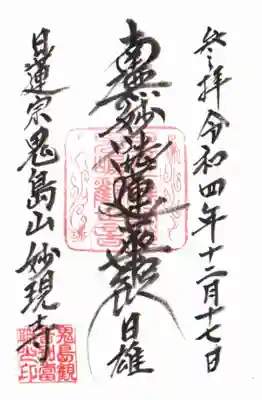 参拝令和四年十二月十七日
南無妙法蓮華経
日雄
日蓮宗鬼島山妙現寺